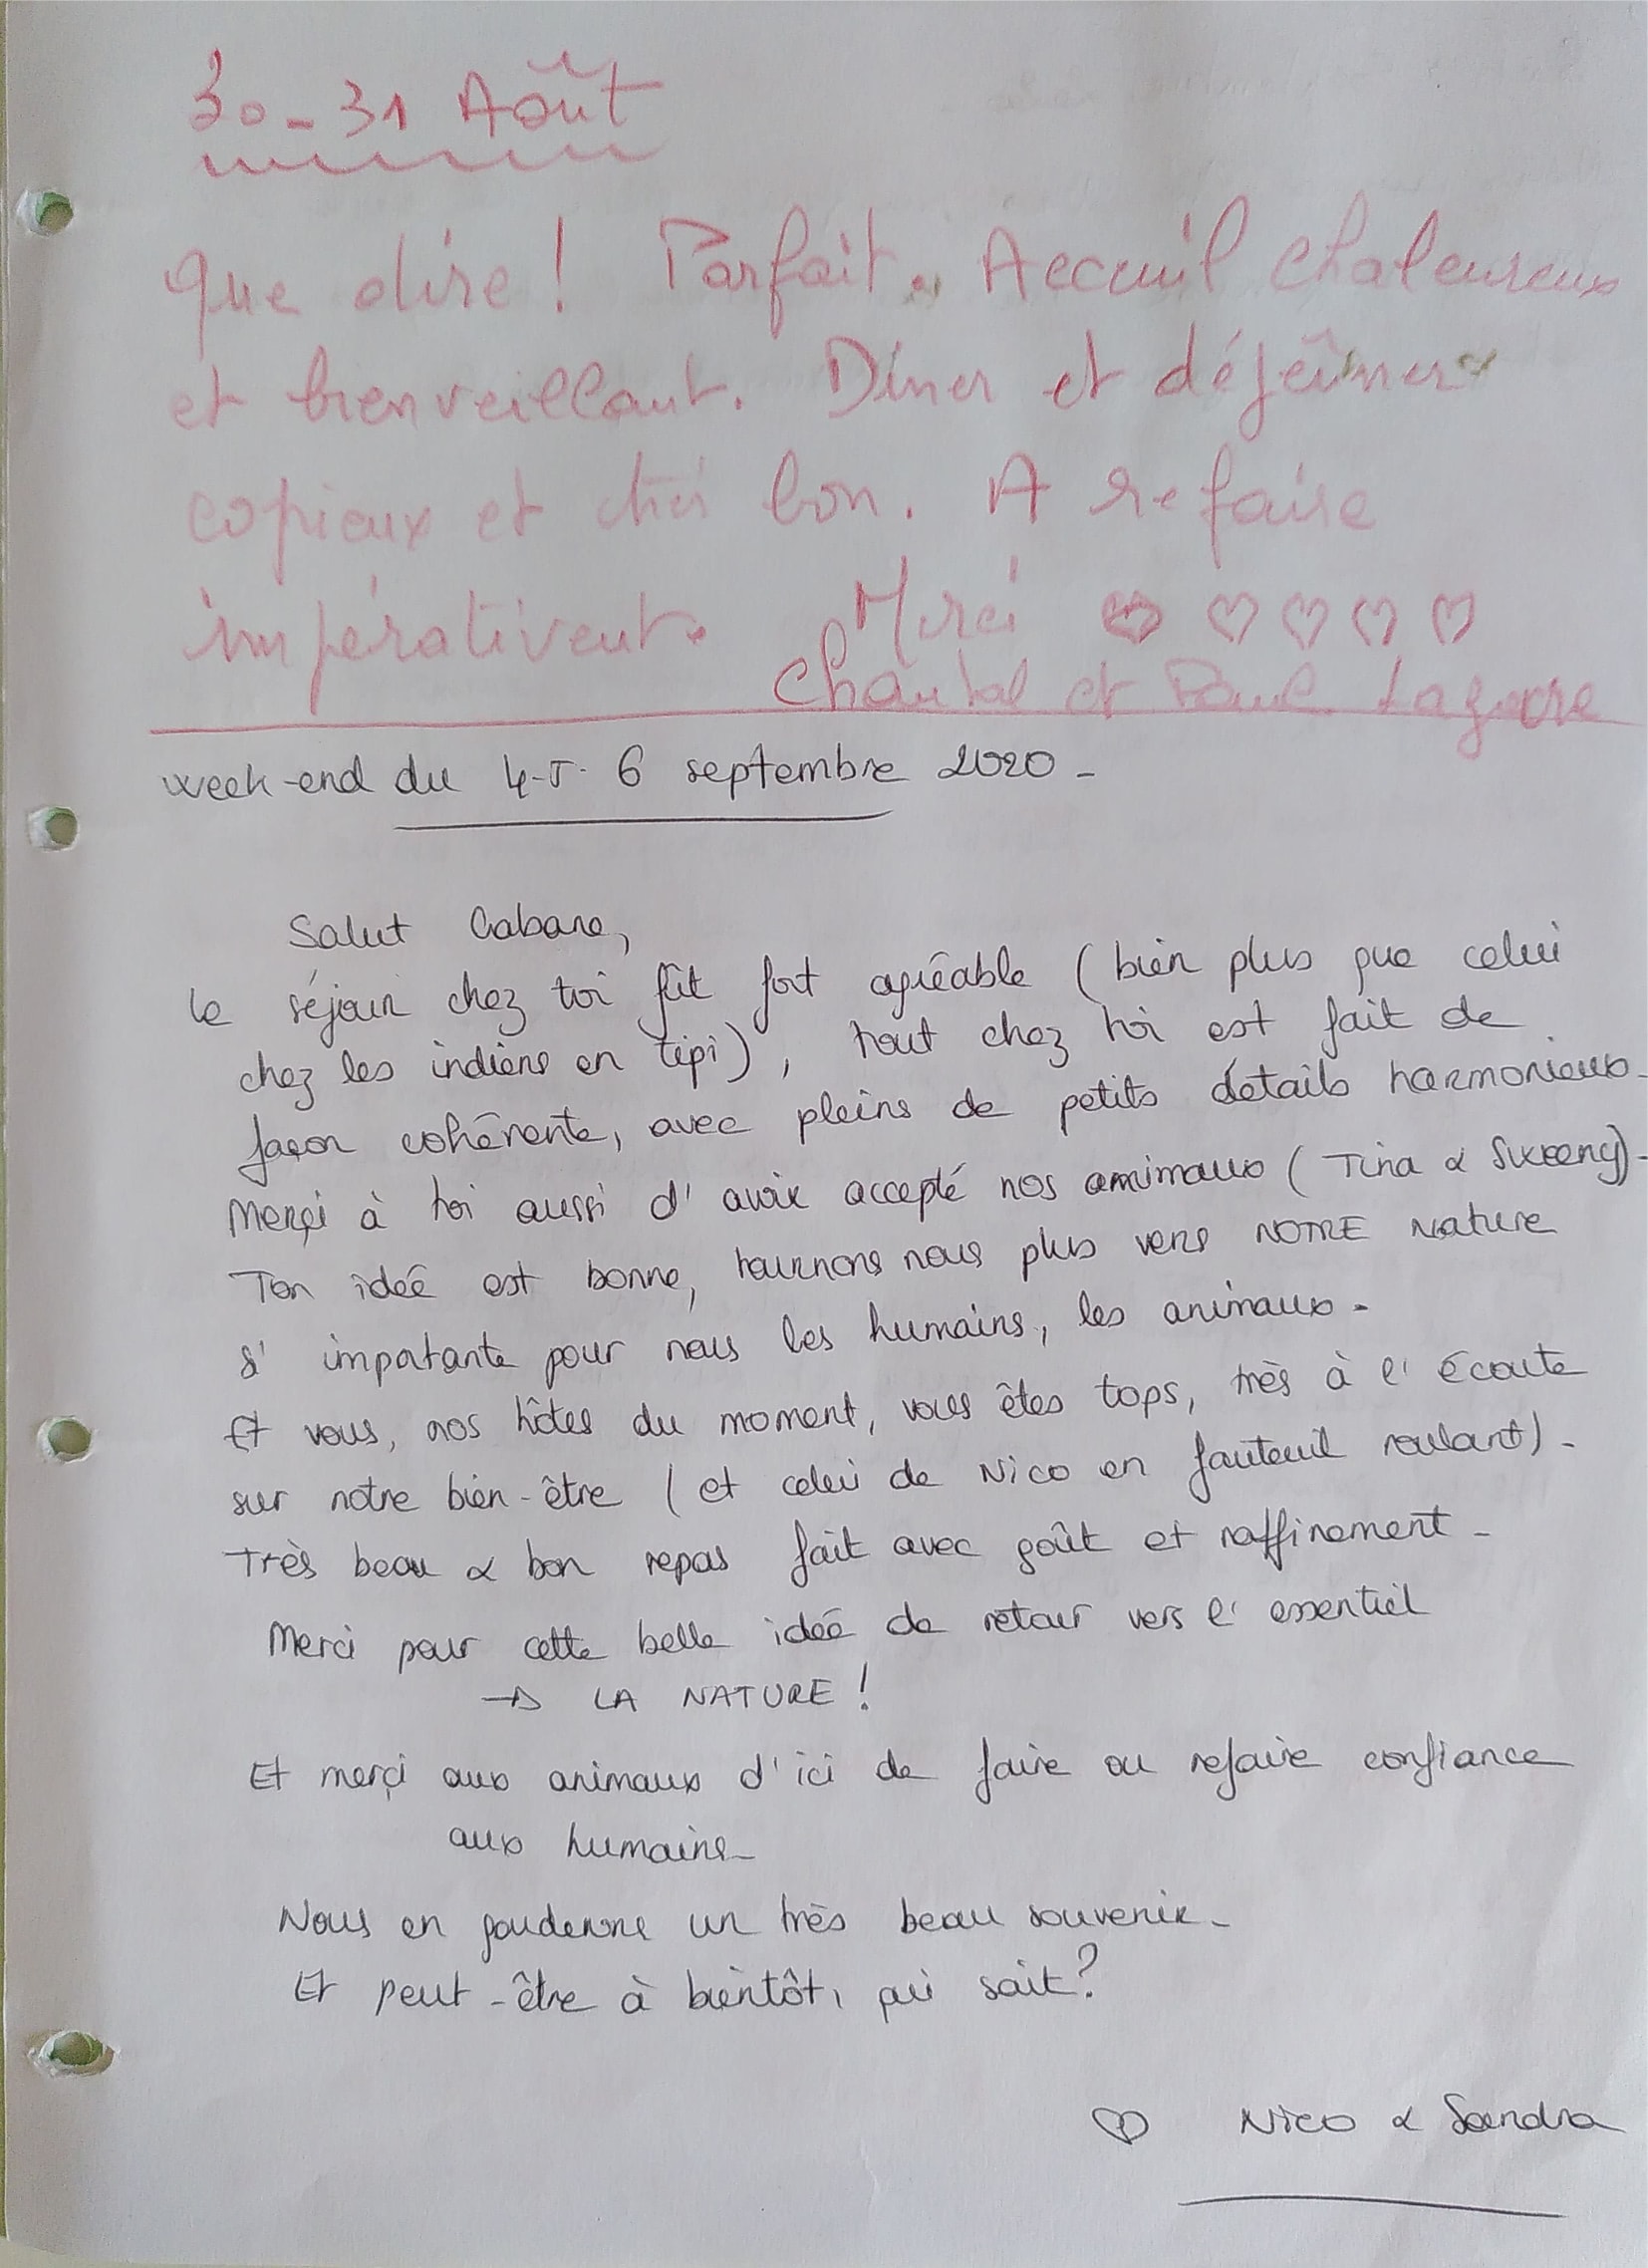 30-31 Août
Que dire ! Parfait. Acceuil chaleureux
et bienveillant. Dîner et déjeûner
copieux et très bon. A refaire
impérativent. Merci ♡ ♡ ♡ ♡ ♡
Chantal et Paul
week-end du 4-5-6 septembre 2020 -
Salut Cabane,
Le séjour chez toi fût fort agréable (bien plus que celui
chez les indiens en tipi), tout chez toi est fait de
façon cohérente, avec pleins de petits détails harmonieux -
Merçi à toi aussi d'avoir accepté nos amimaux (Tina & Sweeny) -
Ton idéé est bonne, tournons nous plus vers NOTRE Nature
si importante pour nous les humains, les animaux -
Et vous, nos hôtes du moment, vous êtes tops, très à l'écoute
sur notre bien-être (et celui de Nico en fauteuil roulant) -
Très beau & bon repas fait avec goût et raffinement -
Merci pour cette belle idéé de retour vers l'essentiel
→ LA NATURE !
Et merçi aux animaux d'ici de faire ou refaire confiance
aux humains -
Nous en gouderons un très beau souvenir -
Et peut-être à bientôt, qui sait ?
♡ Nico & Sandra